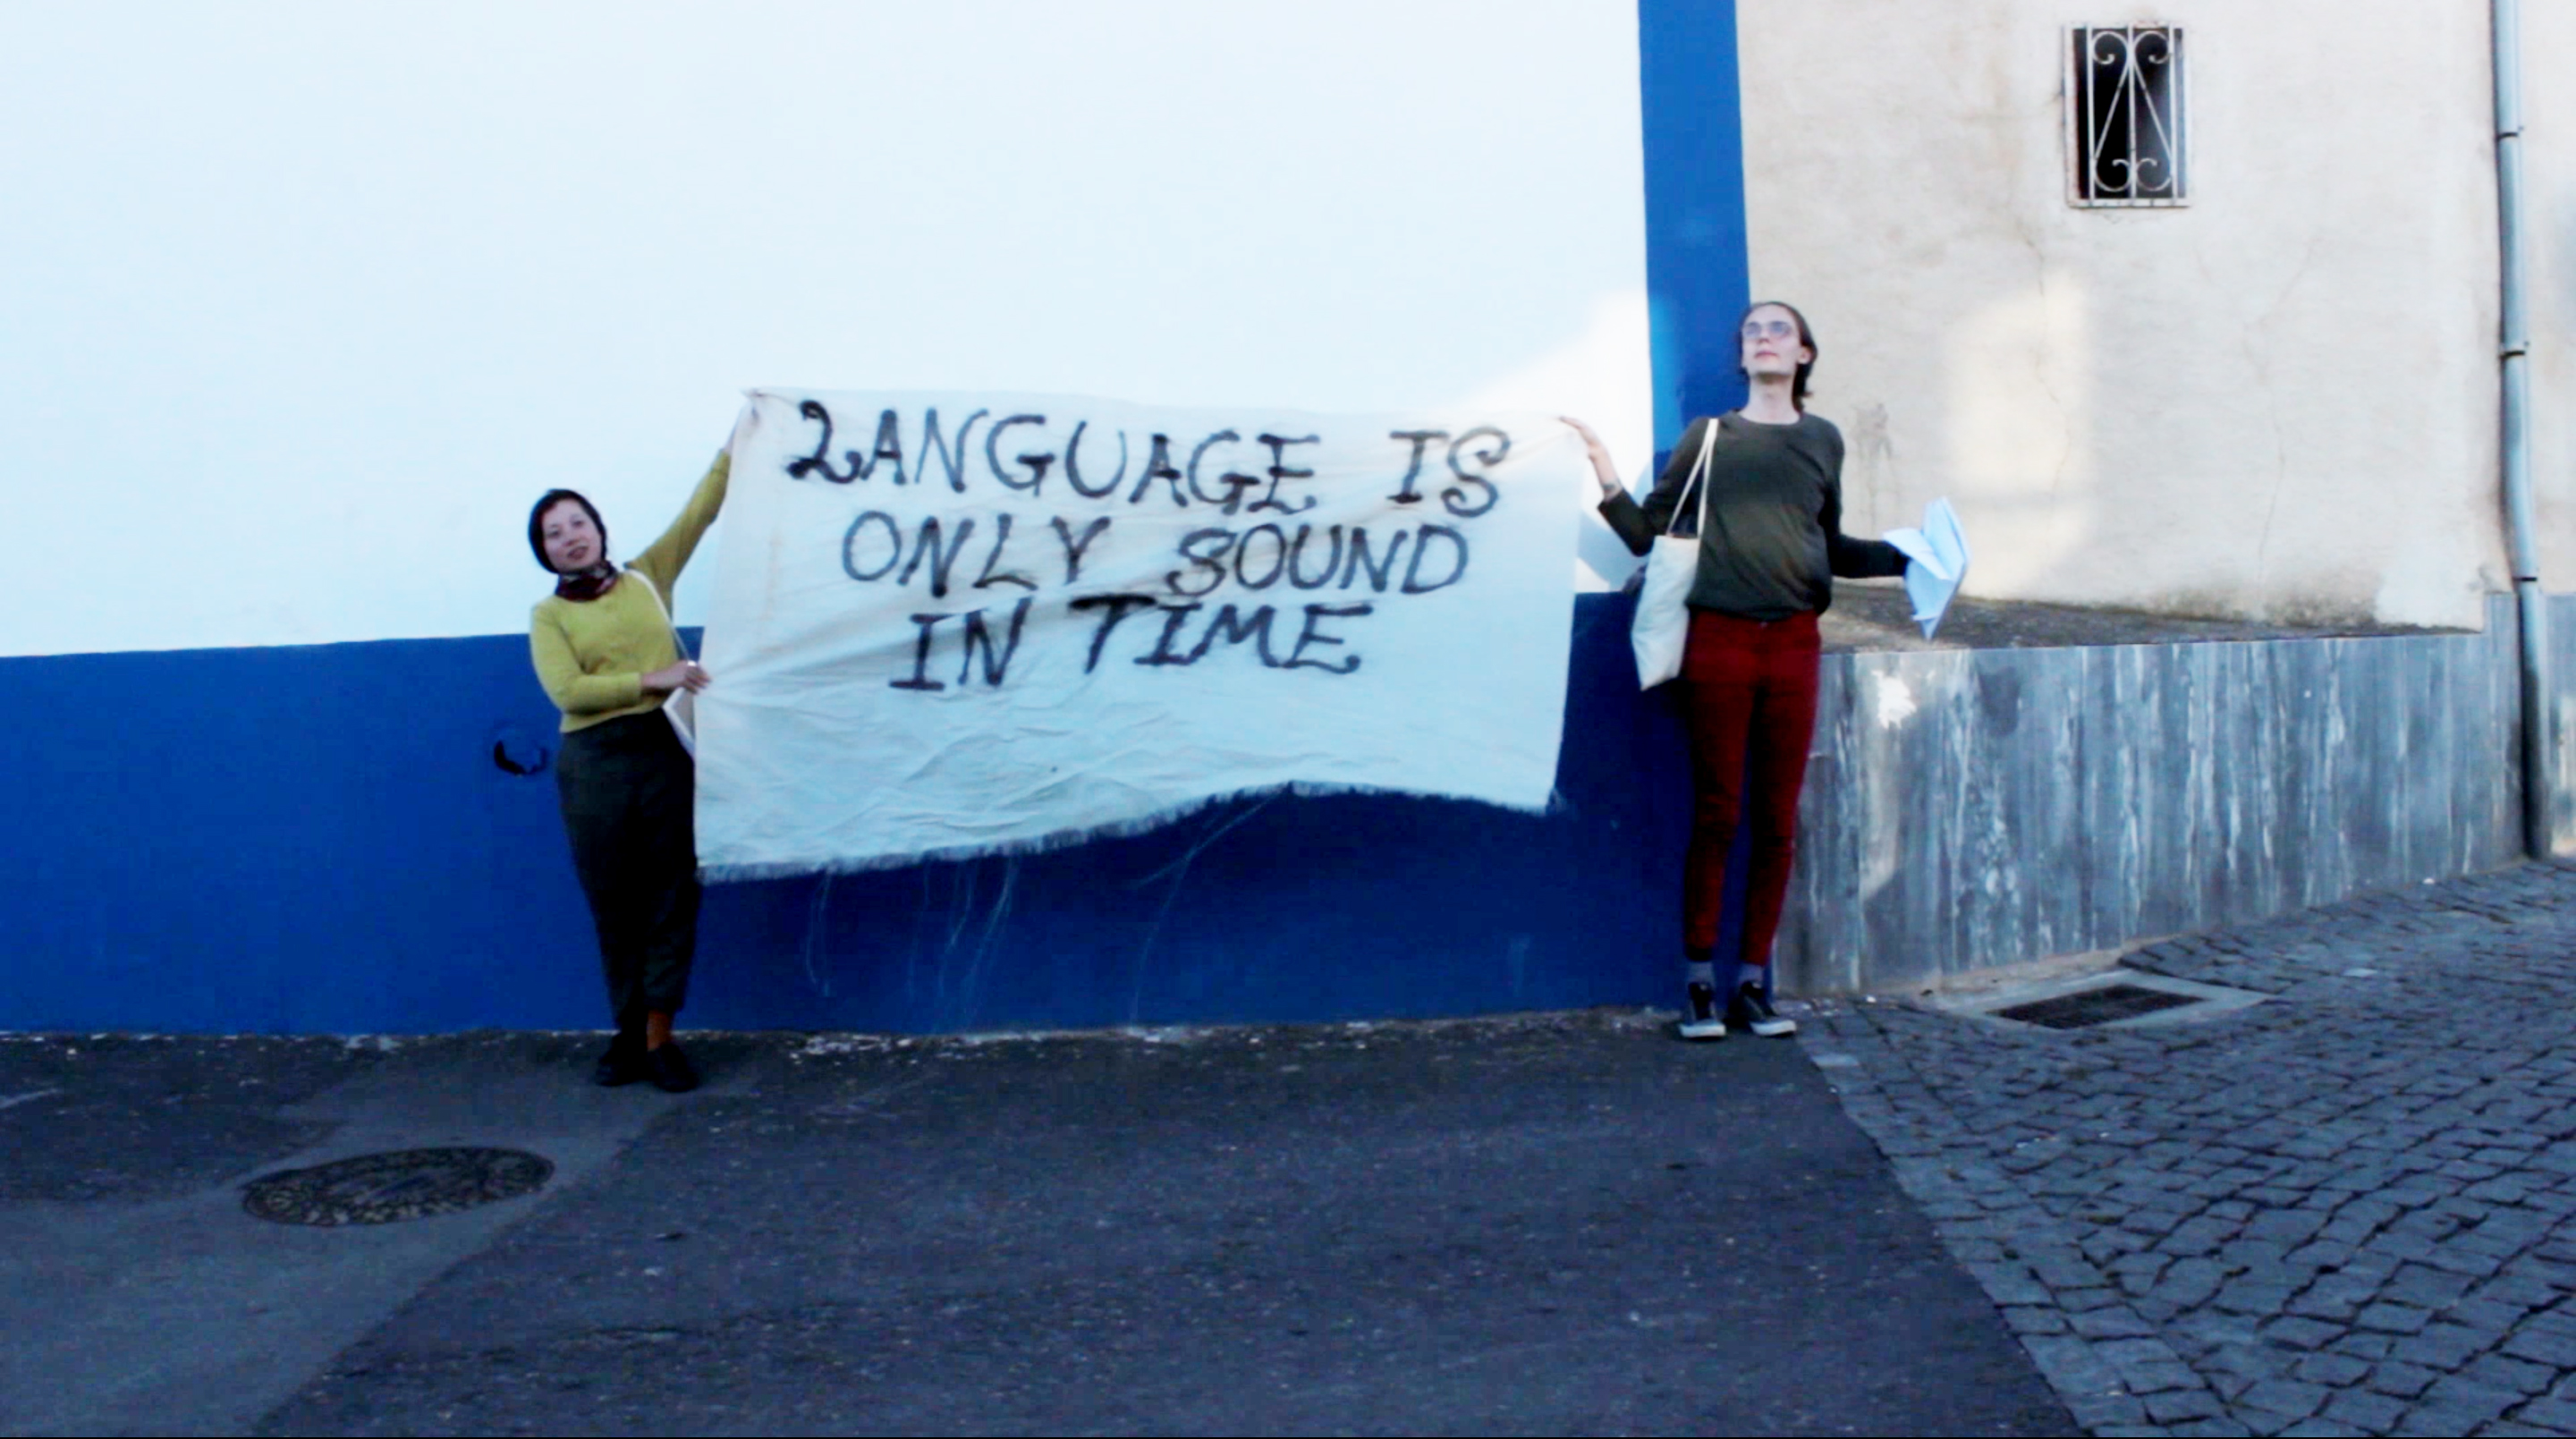 LANGUAGE IS
ONLY SOUND
IN TIME